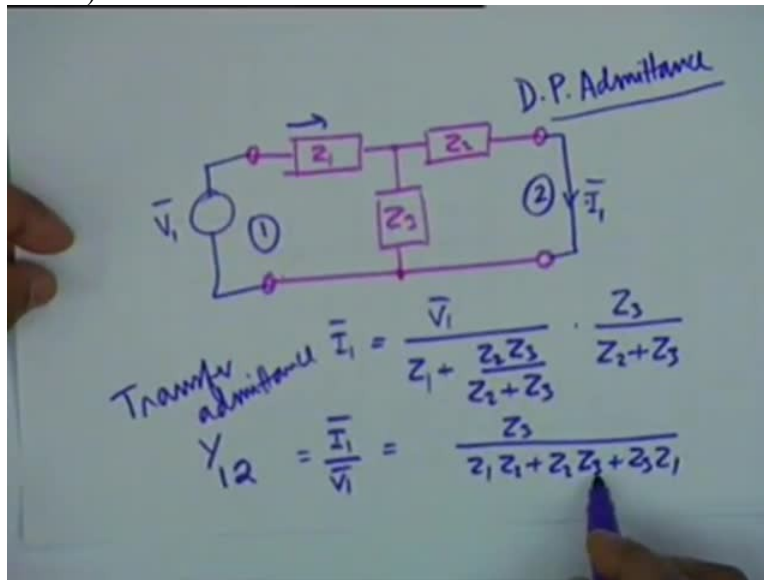 D.P. Admittance
Z₁
Z₂
Z₃
V̄₁
①
②
Ī₁
Transfer admittance
Ī₁ = V̄₁ / (Z₁ + Z₂Z₃ / (Z₂+Z₃)) · Z₃ / (Z₂+Z₃)
Y₁₂ = Ī₁ / V̄₁ = Z₃ / (Z₁Z₂ + Z₂Z₃ + Z₃Z₁)